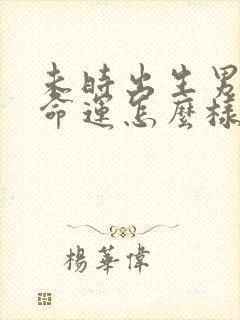 未時出生男
命運怎麼樣
楊華偉